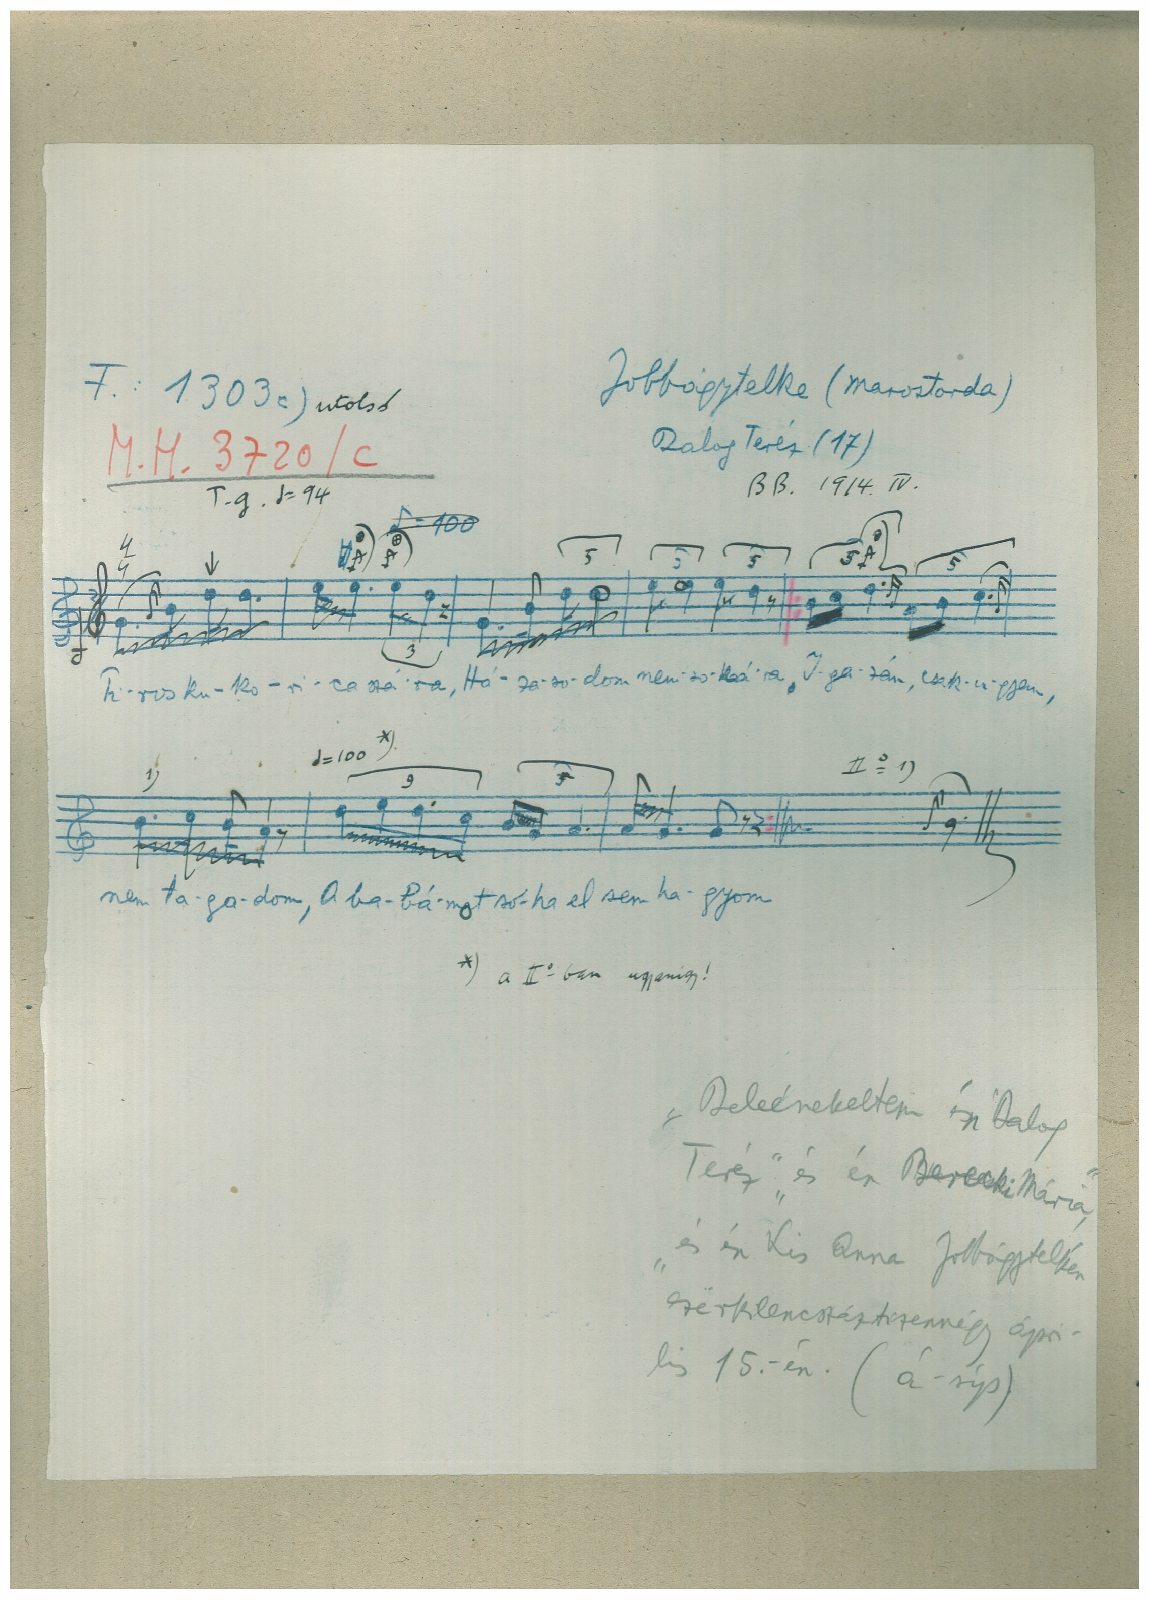 F.: 1303c) utolsó
Jobbágytelke (Marostorda)
M.H. 3720/c
Balog Teréz (17)
T-g. ♩=94
BB. 1914. IV.
♪=100
4
4
5 5 5 5 5
3
Pi-ros ku-ko-ri-ca szá-ra, Há-za-so-dom nem so-ká-ra, I-ga-zán, csak-u-gyan,
1)
♩=100 *)
9
5
II º 1)
nem ta-ga-dom, A ba-bá-mot so-ha el sem ha-gyom
*) a IIº-ban ugyanígy!
„Beleénekeltem én Balog
Teréz" „és én Berecki Mária"
„és én Kis Anna Jobbágytelkén
ezerkilencszáztizennégy ápri-
lis 15.-én. (á-síp)